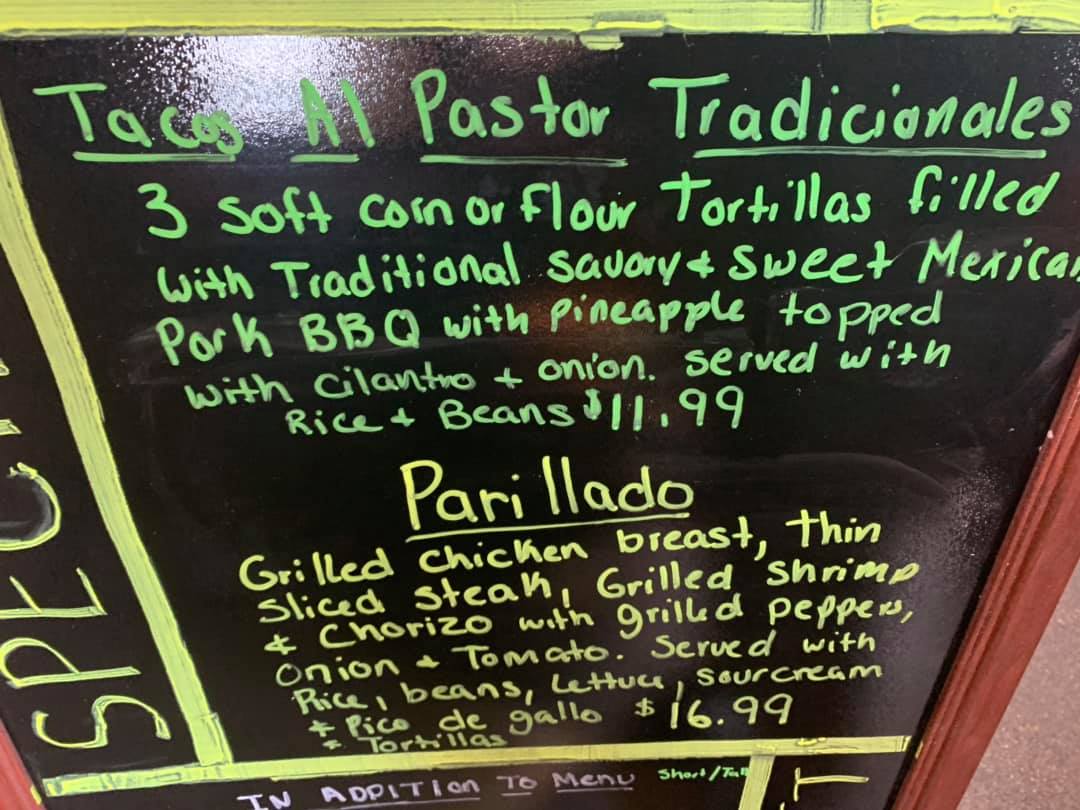 Tacos Al Pastor Tradicionales
3 Soft corn or Flour Tortillas filled
with Traditional savory & sweet Mexican
Pork BBQ with Pineapple topped
with cilantro + onion. served with
Rice + Beans $11.99
Parillado
Grilled chicken breast, thin
sliced steak, Grilled shrimp
& Chorizo with grilled peppers,
onion + Tomato. Served with
Rice, beans, Lettuce, sourcream
+ Pico de gallo $16.99
+ Tortillas
SPECIA
IN ADDITION To Menu
Short/Tall